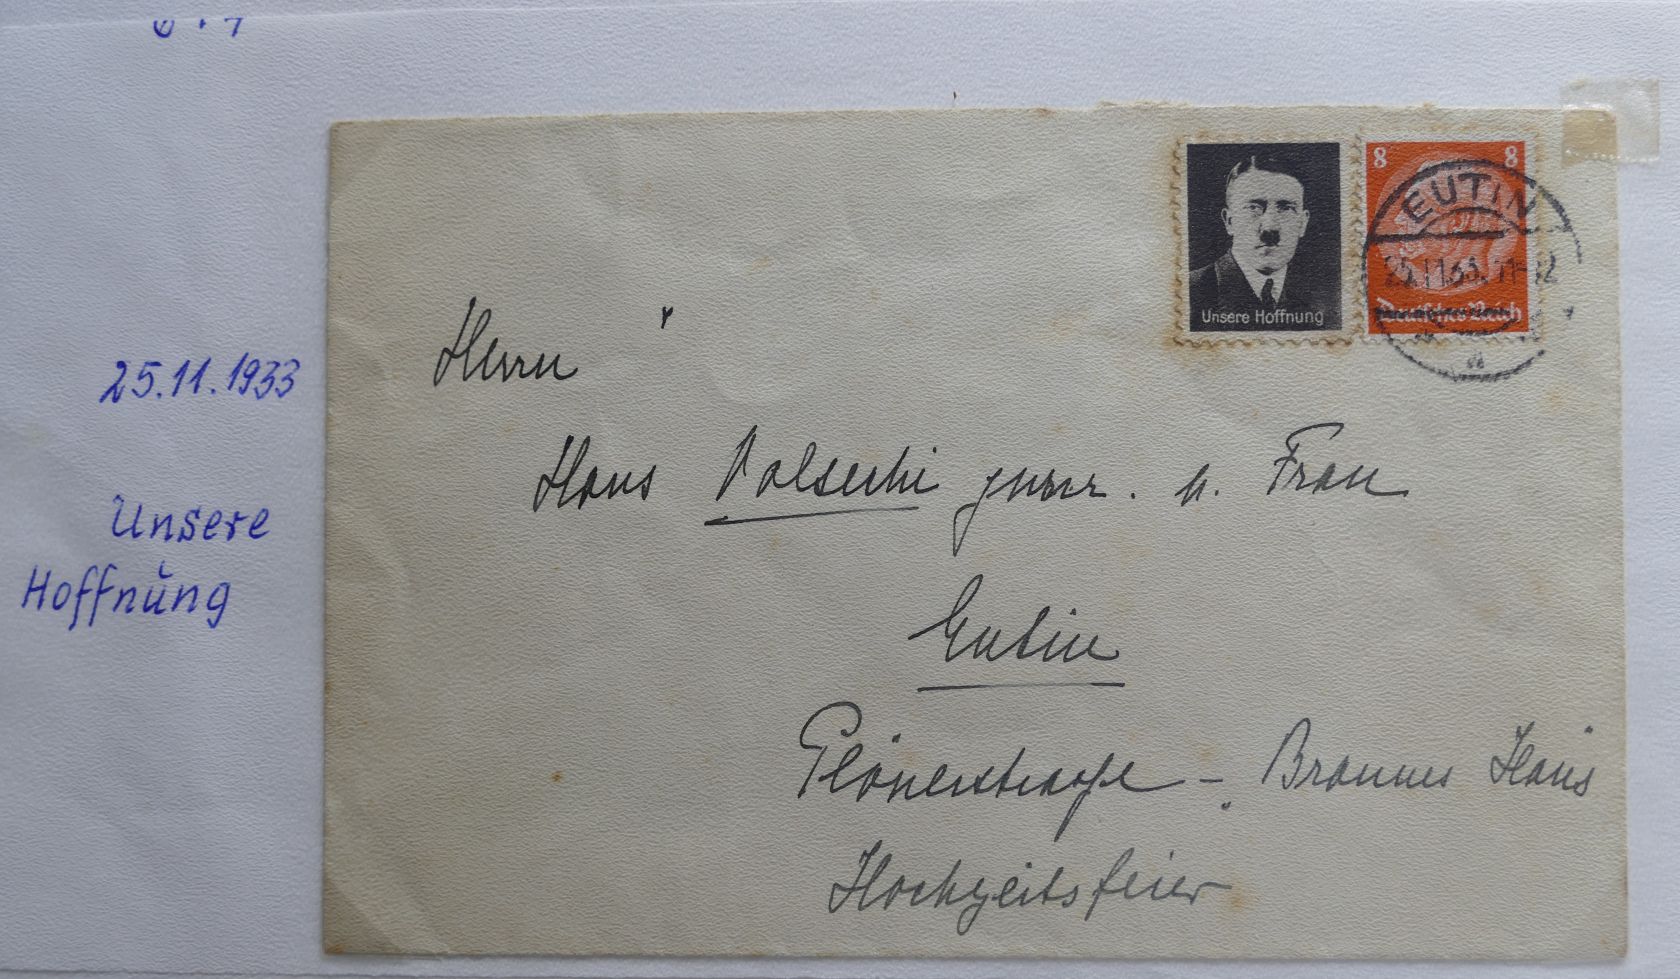 25.11.1933
Unsere
Hoffnung
Unsere Hoffnung
8 8
Deutsches Reich
EUTIN
25.11.33. 11-12
Herrn
Hans junr. u. Frau
Eutin
Plönerstraße - Braunes Haus
Hochzeitsfeier